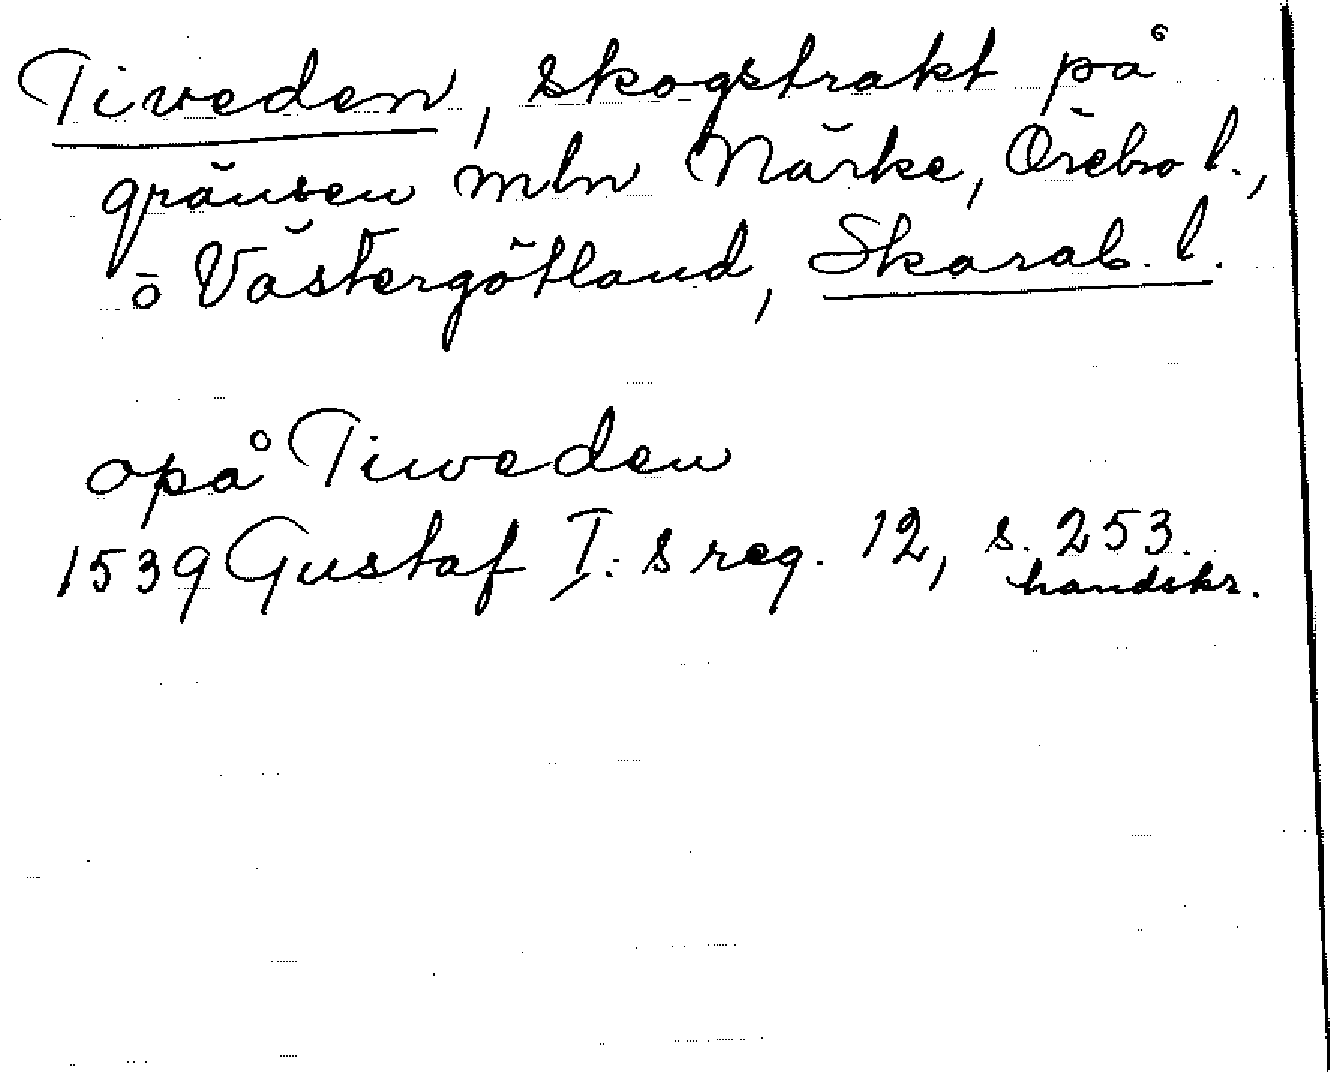 Tiveden, skogstrakt på
gränsen mln Närke, Örebro l.,
o Västergötland, Skarab. l.
opå Tiweden
1539 Gustaf I:s reg. 12, s. 253.
handskr.